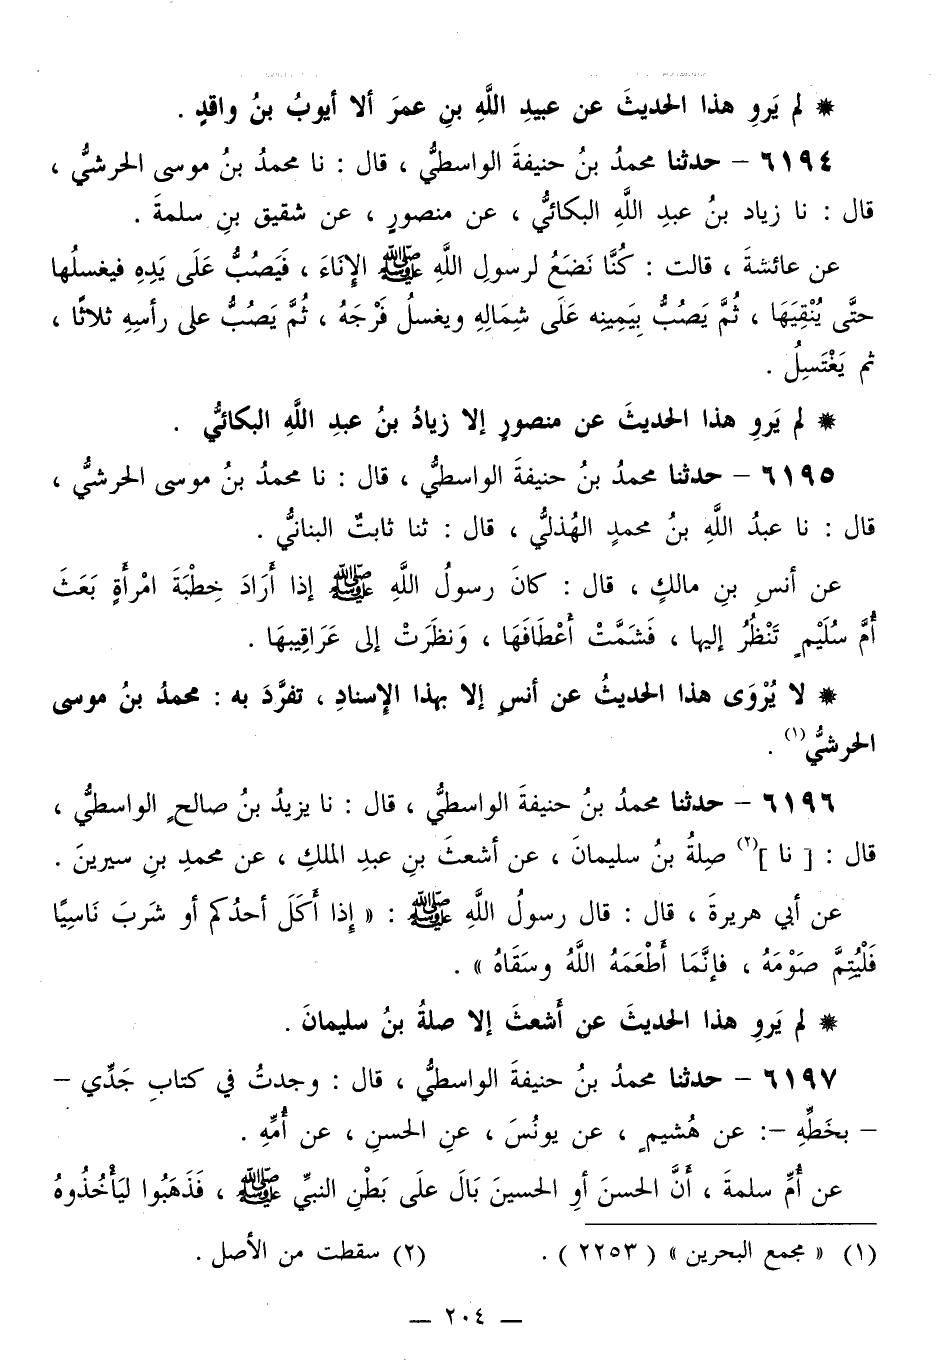 * لم يَروِ هذا الحديثَ عن عبيدِ اللَّهِ بنِ عمرَ ألا أيوبُ بنُ واقدٍ .
٦١٩٤ – حدثنا محمدُ بنُ حنيفةَ الواسطيُّ ، قال : نا محمدُ بنُ موسى الحرشيُّ ،
قال : نا زياد بنُ عبدِ اللَّهِ البكائيُّ ، عن منصورٍ ، عن شقيق بنِ سلمةَ .
عن عائشةَ ، قالت : كُنَّا نَضَعُ لرسولِ اللَّهِ ﷺ الإِنَاءَ ، فَيَصُبُّ عَلَى يَدِهِ فيغسلُها
حتَّى يُنْقِيَهَا ، ثُمَّ يَصُبُّ بِيَمِينِه عَلَى شِمَالِهِ ويغسلُ فَرْجَهُ ، ثُمَّ يَصُبُّ على رأسِهِ ثلاثًا ،
ثم يَغْتَسِلُ .
* لم يَروِ هذا الحديثَ عن منصورٍ إلا زيادُ بنُ عبدِ اللَّهِ البكائيُّ .
٦١٩٥ – حدثنا محمدُ بنُ حنيفةَ الواسطيُّ ، قال : نا محمدُ بنُ موسى الحرشيُّ ،
قال : نا عبدُ اللَّهِ بنُ محمدٍ الهُذليُّ ، قال : ثنا ثابتٌ البنانيُّ .
عن أنسِ بنِ مالكٍ ، قال : كانَ رسولُ اللَّهِ ﷺ إذا أَرَادَ خِطْبَةَ امْرأَةٍ بَعَثَ
أُمَّ سُلَيْمٍ تَنْظُرُ إليها ، فَشَمَّتْ أَعْطَافَهَا ، وَنظَرَتْ إلى عَرَاقِيبهَا .
* لا يُرْوَى هذا الحديثُ عن أنسٍ إلا بهذا الإِسنادِ ، تفرَّدَ به : محمدُ بنُ موسى
الحرشيُّ(١) .
٦١٩٦ – حدثنا محمدُ بنُ حنيفةَ الواسطيُّ ، قال : نا يزيدُ بنُ صالحٍ الواسطيُّ ،
قال : [ نا ](٢) صِلةُ بنُ سليمانَ ، عن أشعثَ بنِ عبدِ الملكِ ، عن محمدِ بنِ سيرينَ .
عن أبي هريرةَ ، قال : قال رسولُ اللَّهِ ﷺ : « إذا أَكَلَ أحدُكم أو شَرِبَ نَاسِيًا
فَلْيُتِمَّ صَوْمَهُ ، فإنَّمَا أَطْعَمَهُ اللَّهُ وسَقَاهُ » .
* لم يَروِ هذا الحديثَ عن أَشعثَ إلا صلةُ بنُ سليمانَ .
٦١٩٧ – حدثنا محمدُ بنُ حنيفةَ الواسطيُّ ، قال : وجدتُ في كتابِ جَدِّي –
– بخَطِّهِ –: عن هُشيمٍ ، عن يونُسَ ، عنِ الحسنِ ، عن أُمِّهِ .
عن أُمِّ سلمةَ ، أَنَّ الحسنَ أوِ الحسينَ بَالَ علَى بَطْنِ النبيِّ ﷺ ، فَذَهَبُوا ليَأْخُذُوهُ
(١) « مجمع البحرين » ( ٢٢٥٣ ) .
(٢) سقطت من الأصل .
— ٢٠٤ —